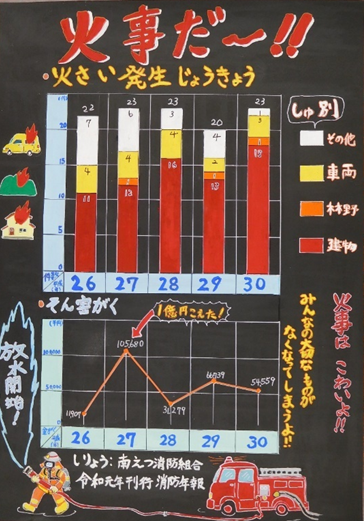 火事だ〜!!
・火さい発生じょうきょう
しゅ別
その他
車両
林野
建物
22
23
23
20
23
7
6
3
4
4
4
2
11
13
16
13
15
20
15
10
5
0
26
27
28
29
30
・そん害がく
1億円こえた!
11909
105680
31279
66539
54559
26
27
28
29
30
火事はこわいよ!!
みんなの大切なものが
なくなってしまうよ!!
放水開始!
しりょう:南えつ消防組合
令和元年刊行 消防年報